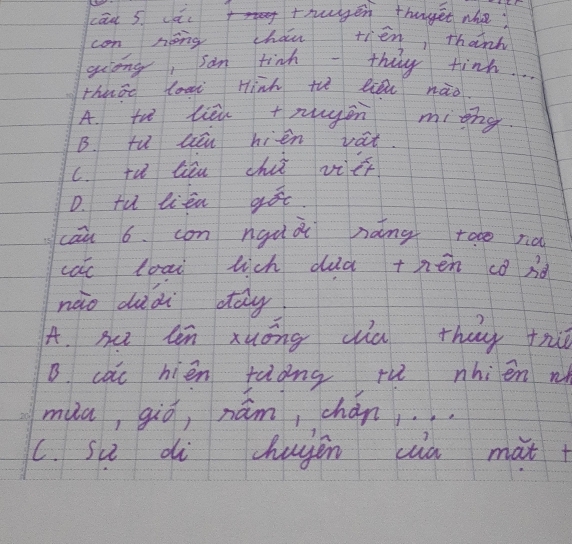 câu 5. các truyền thuyết như:
con rồng cháu tiên, thánh
gióng, sơn tinh - thủy tinh...
thuộc loại hình tư liệu nào.
A. tư liệu truyền miệng
B. tư liệu hiện vật.
C. tư liệu chữ viết.
D. tư liệu gốc.
câu 6. con người sáng tạo ra
các loại lịch dựa trên cơ sở
nào dưới đây.
A. sự lên xuống của thủy triề
B. các hiện tượng tự nhiên nh
mưa, gió, sấm, chớp,...
C. Sự di chuyển của mặt t